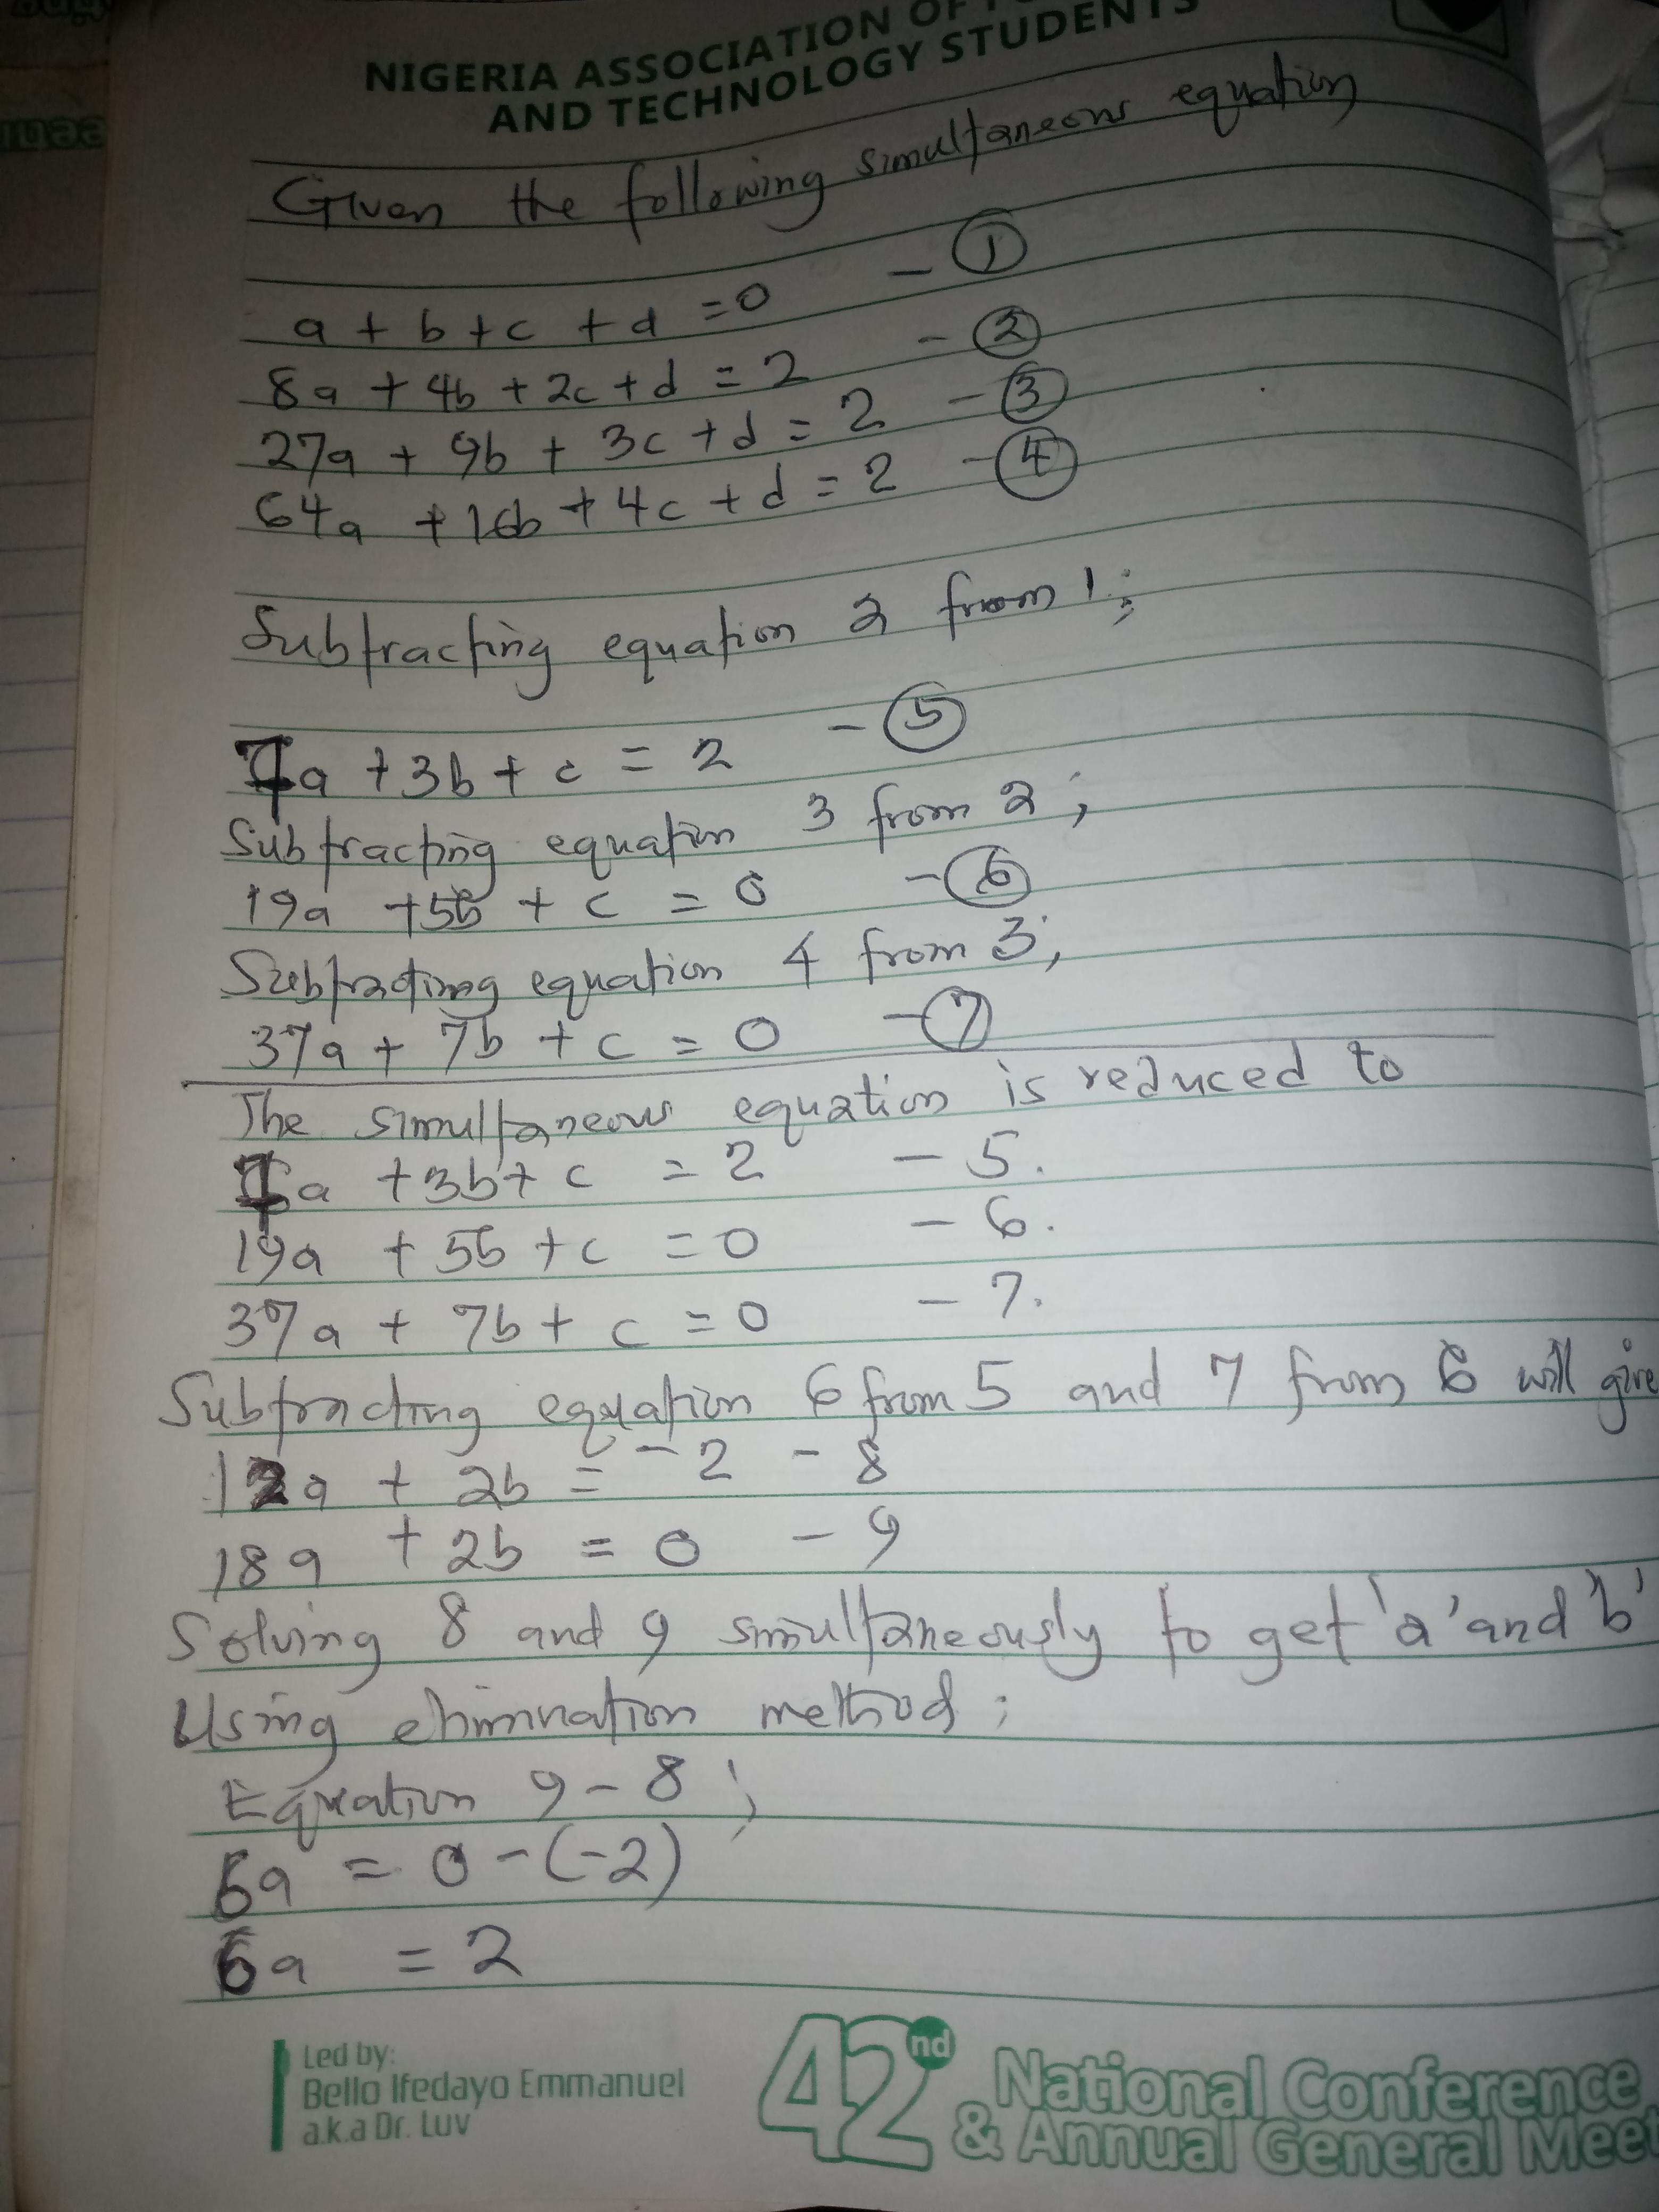 NIGERIA ASSOCIATION OF
AND TECHNOLOGY STUDENTS
Given the following simultaneous equation
a + b + c + d = 0 - ①
8a + 4b + 2c + d = 2 - ②
27a + 9b + 3c + d = 2 - ③
64a + 16b + 4c + d = 2 - ④
Subtracting equation 2 from 1;
7a + 3b + c = 2 - ⑤
Subtracting equation 3 from 2;
19a + 5b + c = 0 - ⑥
Subtracting equation 4 from 3;
37a + 7b + c = 0 - ⑦
The simultaneous equation is reduced to
7a + 3b + c = 2 - 5.
19a + 5b + c = 0 - 6.
37a + 7b + c = 0 - 7.
Subtracting equation 6 from 5 and 7 from 6 will give
12a + 2b = -2 - 8
18a + 2b = 0 - 9
Solving 8 and 9 simultaneously to get 'a' and 'b'
Using elimination method;
Equation 9 - 8;
6a = 0 - (-2)
6a = 2
Led by:
Bello Ifedayo Emmanuel
a.k.a Dr. Luv
42nd National Conference
& Annual General Meet